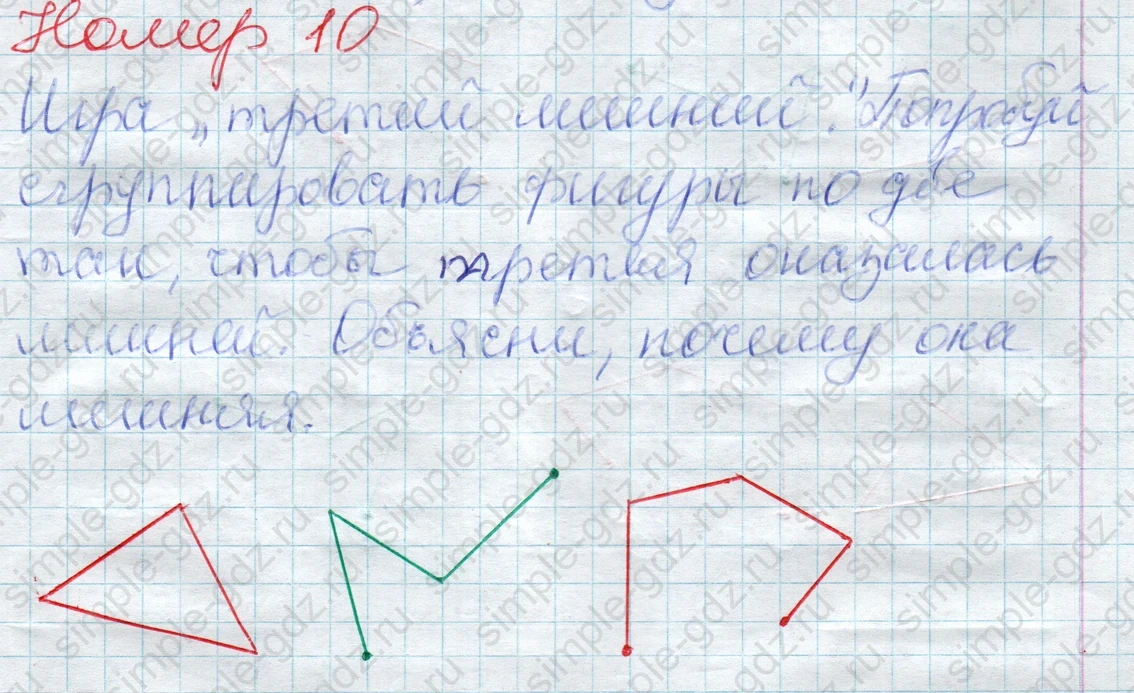 Номер 10
Игра „третий лишний". Попробуй
сгруппировать фигуры по две
так, чтобы третья оказалась
лишней. Объясни, почему она
лишняя.
simple-gdz.ru